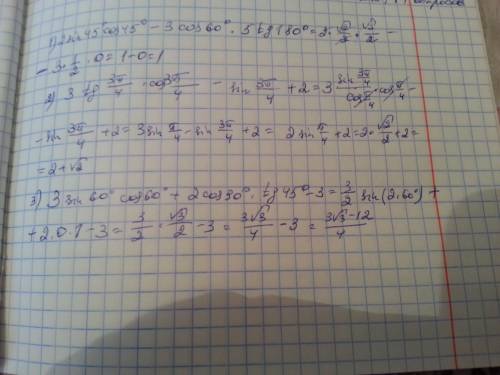 1) 2 sin 45° cos 45° - 3 cos 60° · 5 tg 180° = 2 · √2/2 · √2/2 -
- 3 · 1/2 · 0 = 1 - 0 = 1
2) 3 tg 3π/4 · cos 3π/4 - sin 3π/4 + 2 = 3 sin 3π/4 / cos π/4 · cos π/4 -
- sin 3π/4 + 2 = 3 sin π/4 - sin 3π/4 + 2 = 2 sin π/4 + 2 = 2 · √2/2 + 2 =
= 2 + √2
3) 3 sin 60° cos 60° + 2 cos 90° · tg 45° - 3 = 3/2 sin (2·60°) +
+ 2 · 0 · 1 - 3 = 3/2 · √3/2 - 3 = 3√3/4 - 3 = 3√3 - 12/4